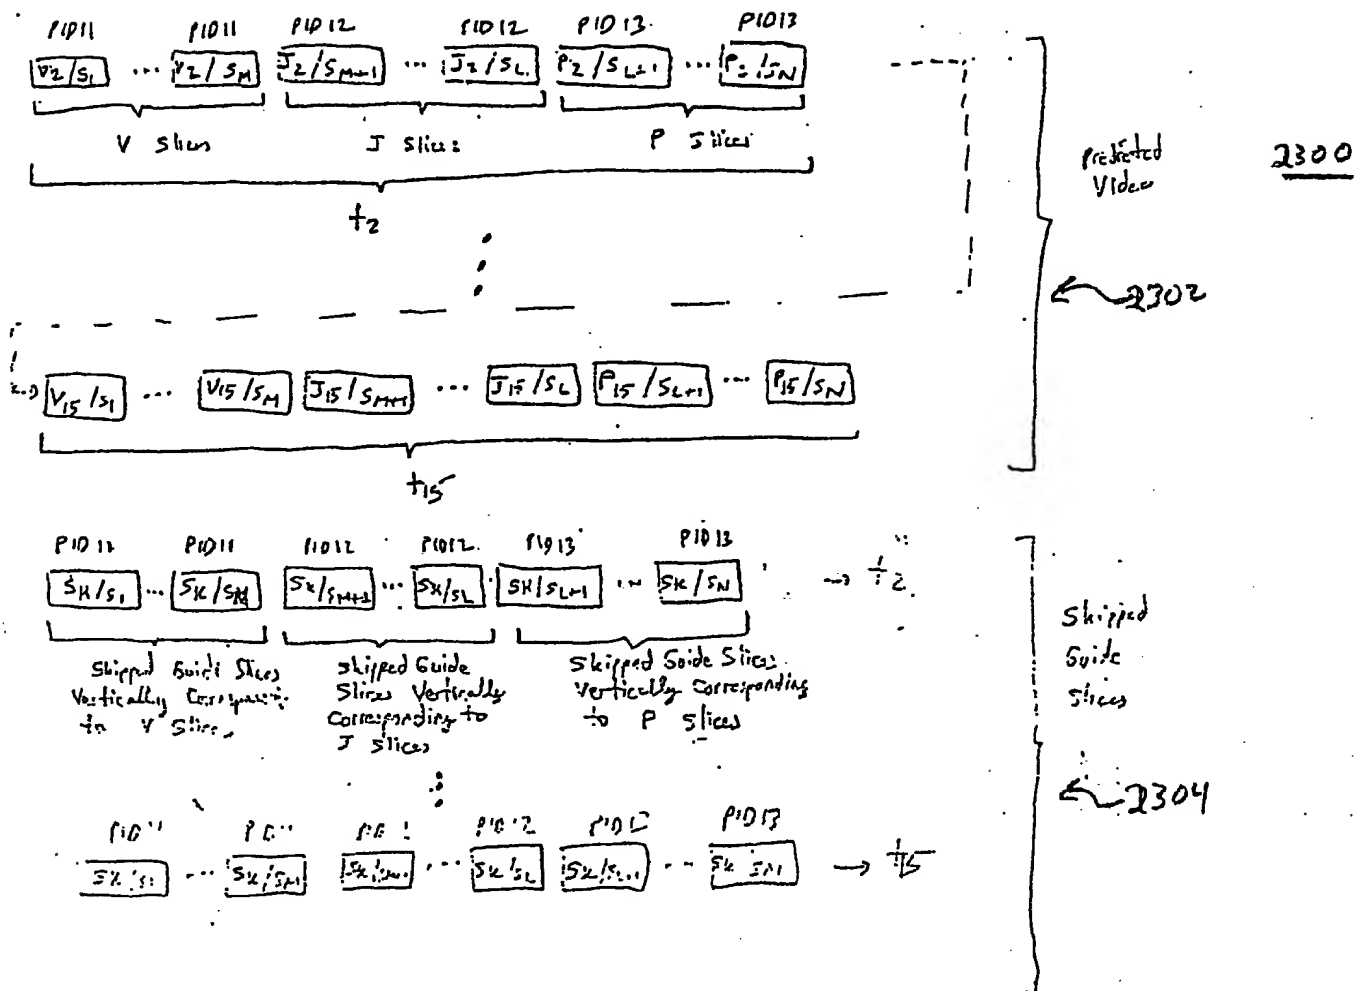 PID11 PID11 PID12 PID12 PID13 PID13
V2/S1 ... V2/SM J2/SM+1 ... J2/SL P2/SL+1 ... P2/SN
V Slices J Slices P Slices
t2
Predicted
Video
2300
2302
V15/S1 ... V15/SM J15/SM+1 ... J15/SL P15/SL+1 ... P15/SN
t15
PID11 PID11 PID12 PID12 PID13 PID13
SK/S1 ... SK/SM SK/SM+1 ... SK/SL SK/SL+1 ... SK/SN → t2
Skipped Guide Slices
Vertically Corresponding
to V Slices
Skipped Guide
Slices Vertically
Corresponding to
J Slices
Skipped Guide Slices
Vertically Corresponding
to P Slices
Skipped
Guide
Slices
2304
PID11 PID11 PID12 PID13
SK/S1 ... SK/SM SK/SM+1 ... SK/SL SK/SL+1 ... → t15